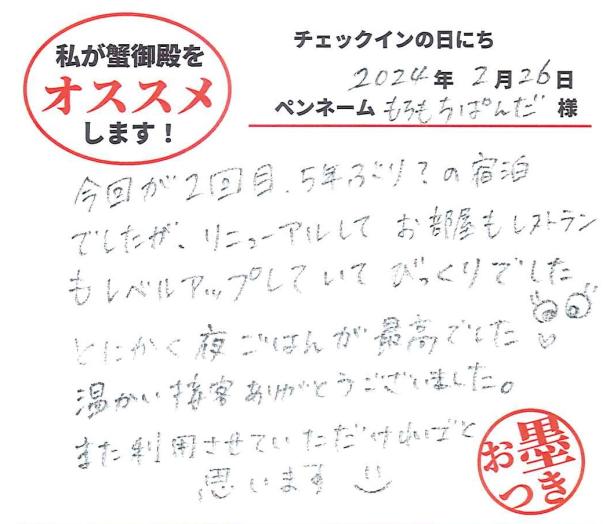 私が蟹御殿を
オススメ
します!
チェックインの日にち
2024年2月26日
ペンネーム もちもちぱんだ 様
今回が2回目、5年ぶり?の宿泊
でしたが、リニューアルして お部屋もレストラン
もレベルアップしていて びっくりでした
とにかく夜ごはんが最高でした♡
温かい接客ありがとうございました。
また利用させていただければと
思います
お墨つき